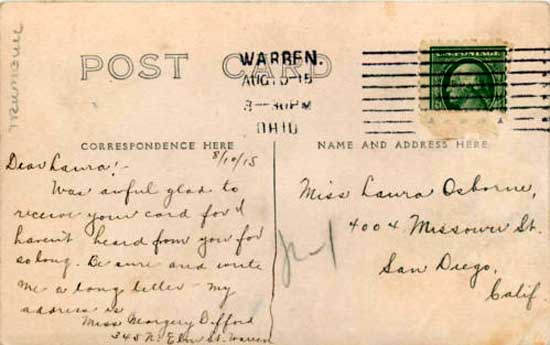 POST CARD
WARREN.
AUG 10 15
3-30PM
OHIO
U.S. POSTAGE
CORRESPONDENCE HERE
NAME AND ADDRESS HERE
8/10/15
Dear Laura!-
Was awful glad to
receive your card for I
haven't heard from you for
so long. Be sure and write
me a long letter - my
address is
Miss Margery Difford
345 N. Elm St. Warren
Miss Laura Osborne,
4004 Missouri St.
San Diego,
Calif.